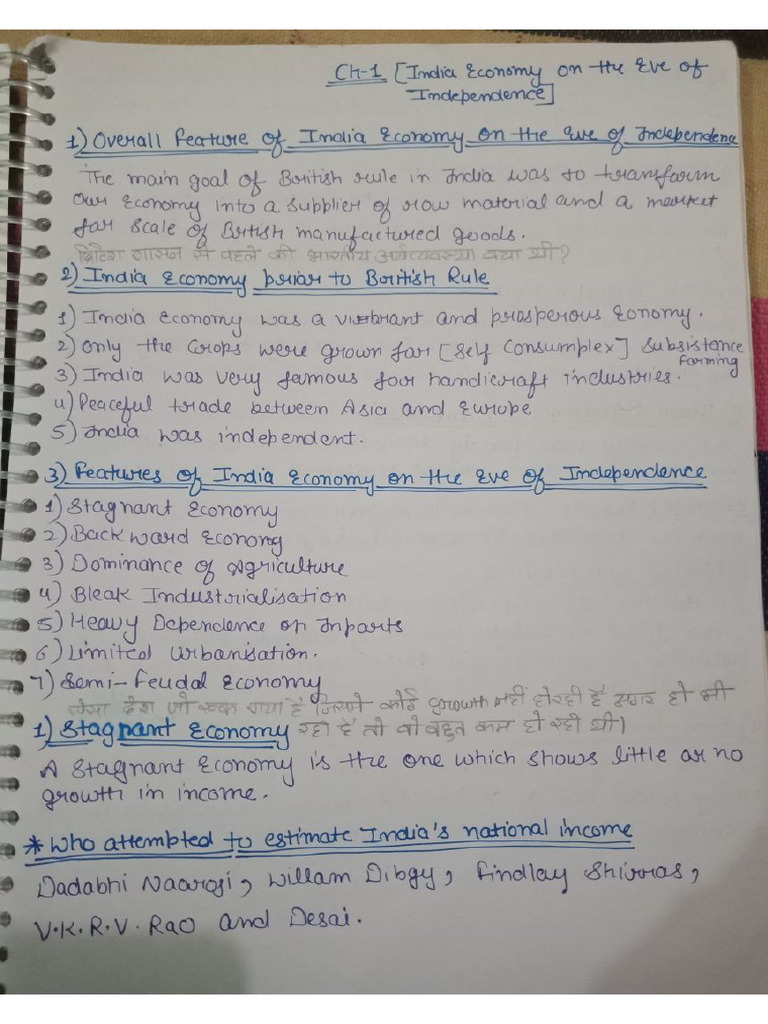 Ch-1 [India Economy on the Eve of
Independence]
1) Overall Feature of India Economy on the Eve of Independence
The main goal of British rule in India was to transfarm
our Economy into a supplier of row material and a market
far scale of British manufactured goods.
ब्रिटिश शासन से पहले की भारतीय अर्थव्यवस्था क्या थी?
2) India Economy priar to British Rule
1) India Economy was a vibrant and prosperous Eonomy.
2) Only the Crops were grown far [Self Consumplex] Subsistance
Farming
3) India was very famous four handicraft industries.
4) Peaceful trade between Asia and Europe
5) India was independent.
3) Features of India Economy on the Eve of Independence
1) Stagnant Economy
2) Back ward Economy
3) Dominance of Agriculture
4) Bleak Industrialisation
5) Heavy Dependence on Inparts
6) Limited Urbanisation.
7) Semi-Feudal Economy
ऐसा देश जो रूक गया है जिसमे कोई growth नहीं हो रही है अगर हो भी
1) Stagnant Economy रही है तो वो बहुत कम हो रही थी।
A Stagnant Economy is the one which shows little ar no
growth in income.
* Who attempted to estimate India's national income
Dadabhi Naaroji, Willam Dibgy, Findlay Shirras,
V.K.R.V. Rao and Desai.